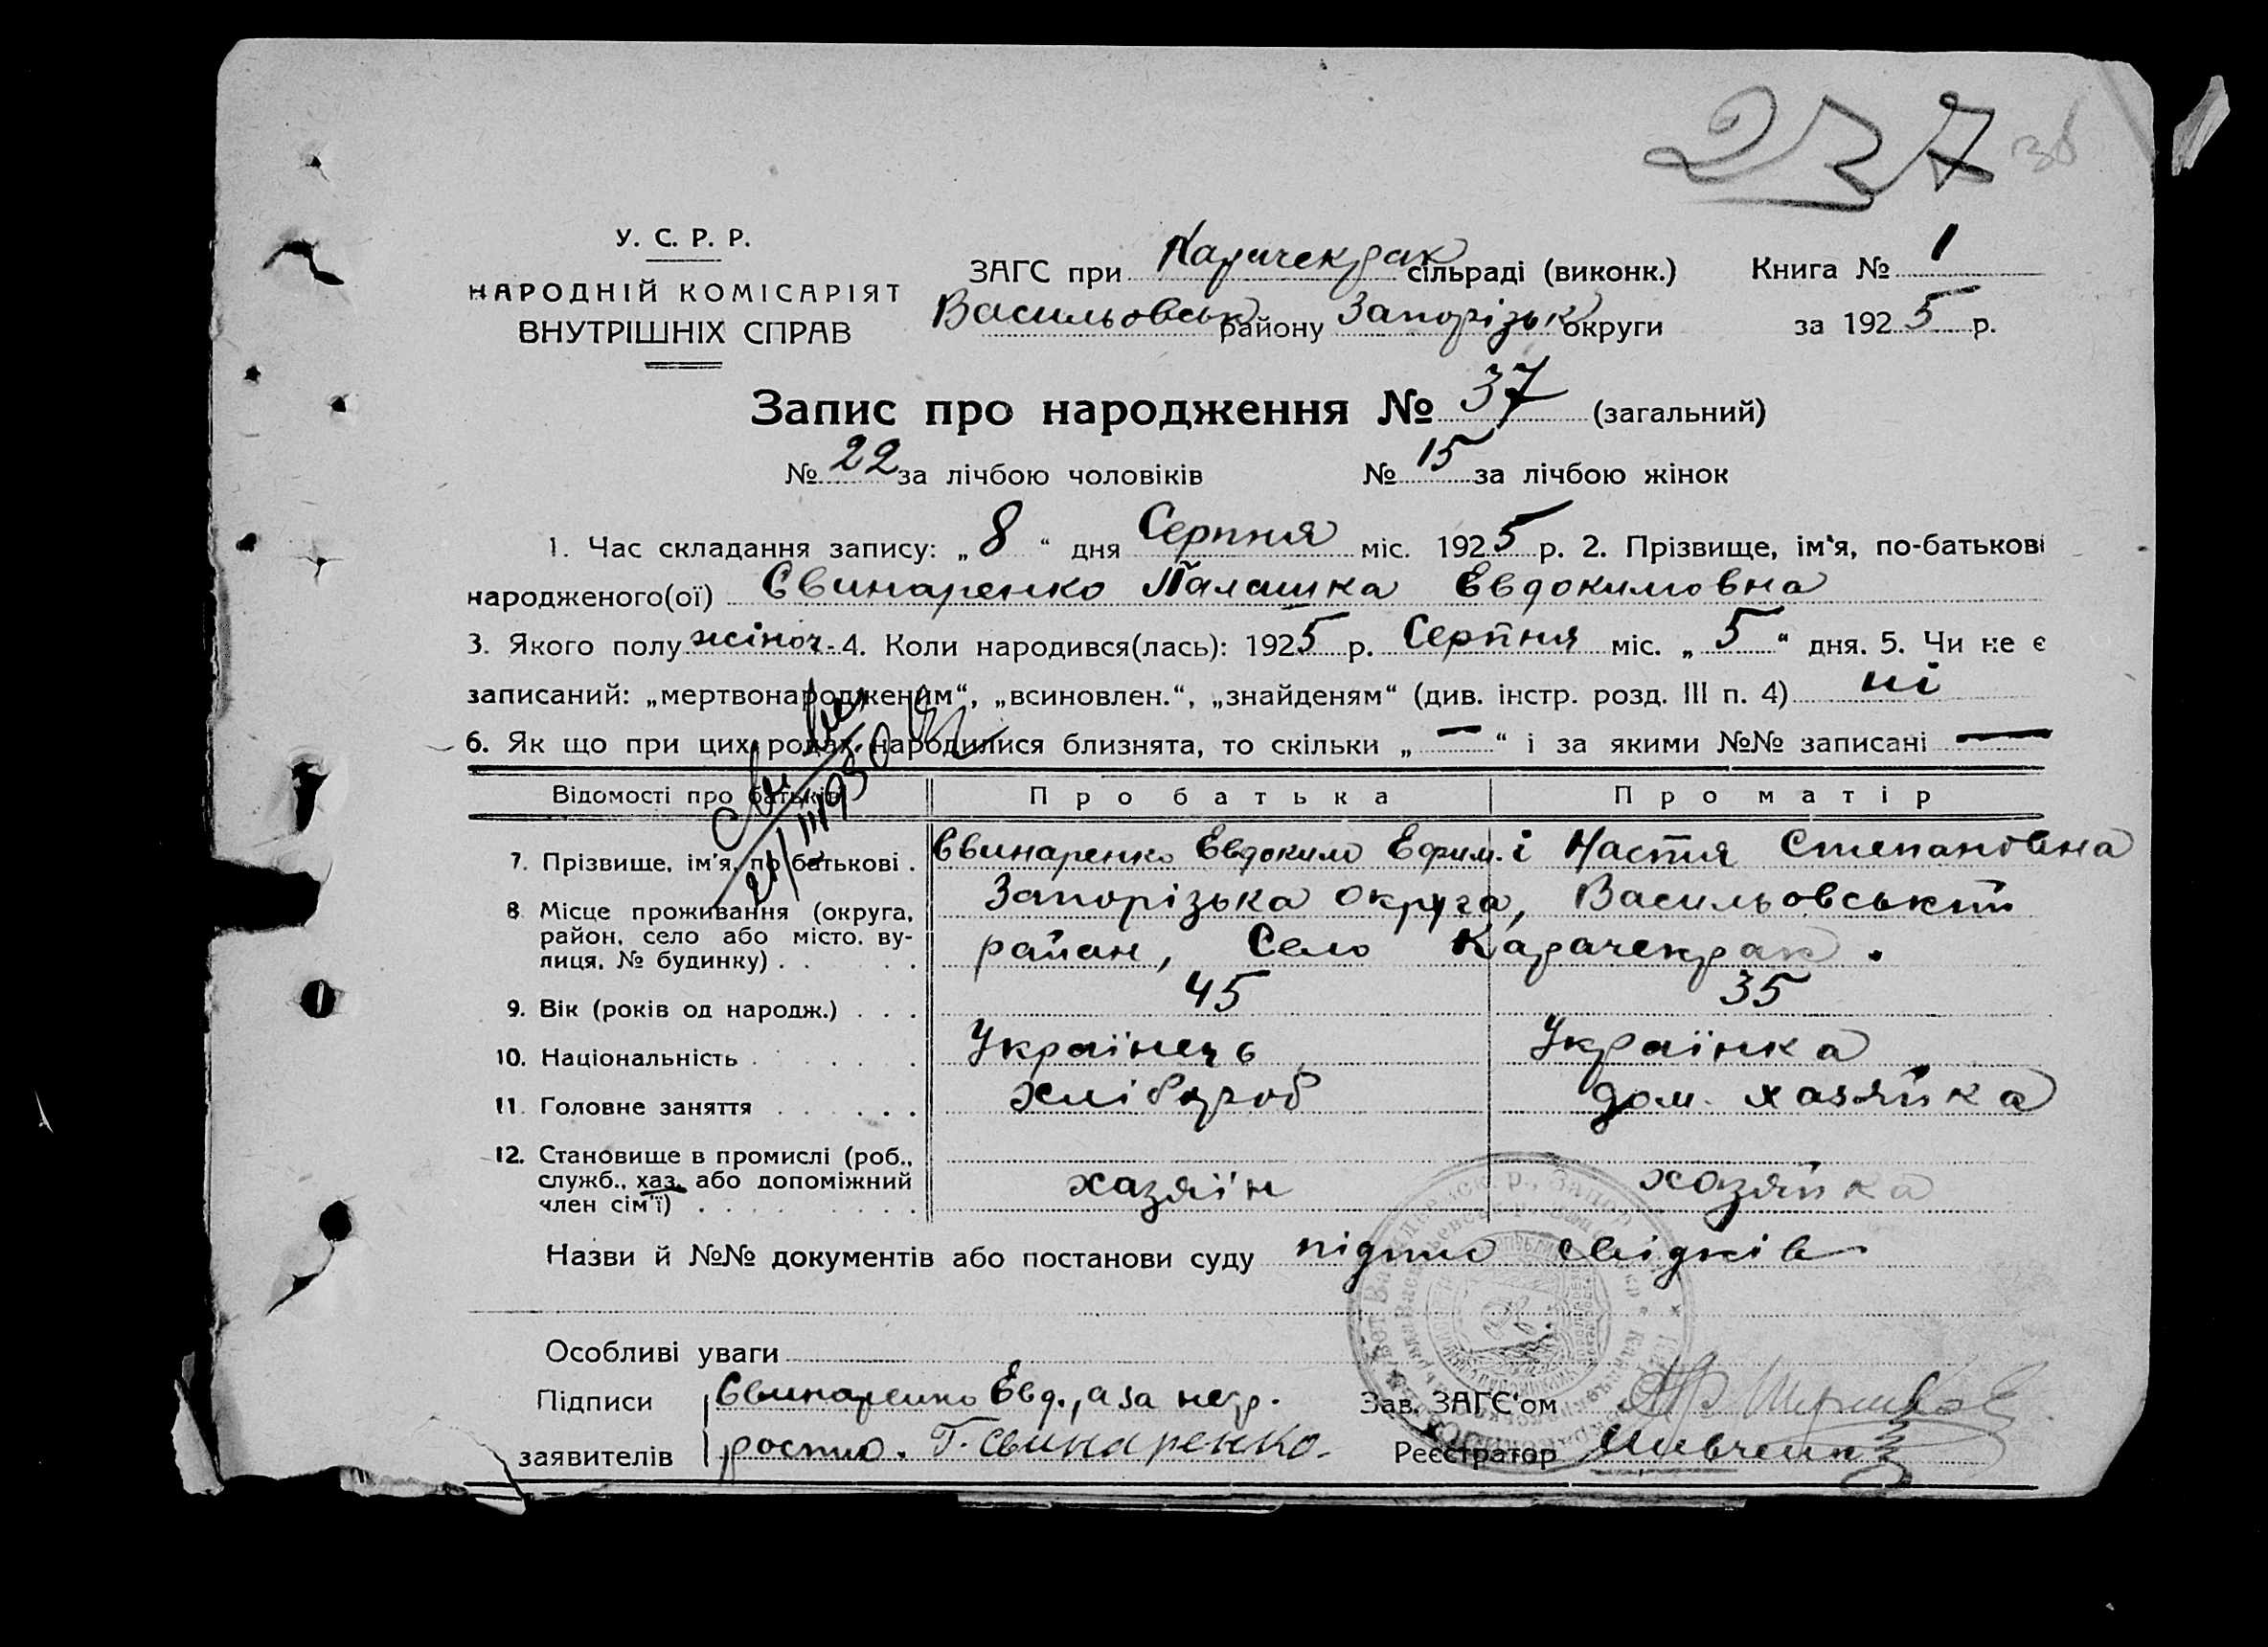 237 зв
У. С. Р. Р.
НАРОДНІЙ КОМІСАРІЯТ
ВНУТРІШНІХ СПРАВ
ЗАГС при Карачекрак сільраді (виконк.) Книга № 1
Васильовськ району Запорізьк округи за 1925 р.
Запис про народження № 37 (загальний)
№ 22 за лічбою чоловіків № 15 за лічбою жінок
1. Час складання запису: „8“ дня Серпня міс. 1925 р. 2. Прізвище, ім'я, по-батькові
народженого(ої) Свинаренко Палашка Евдокимовна
3. Якого полу жіноч. 4. Коли народився(лась): 1925 р. Серпня міс. „5“ дня. 5. Чи не є
записаний: „мертвонародженим“, „всиновлен.“, „знайденям“ (див. інстр. розд. III п. 4) ні
6. Як що при цих родах народилися близнята, то скільки „—“ і за якими №№ записані —
Відомості про батьків Про батька Про матір
7. Прізвище, ім'я, по батькові . Свинаренко Евдоким Ефим. і Настя Степановна
8. Місце проживання (округа, Запорізька округа, Васильовський
район, село або місто, ву-
лиця, № будинку) . . . . район, Село Карачекрак .
9. Вік (років од народж.) . . . 45 35
10. Національність . . . . . Українець Українка
11. Головне заняття . . . . . хлібороб дом. хазяйка
12. Становище в промислі (роб.,
служб., хаз. або допоміжний хазяїн хазяйка
член сім'ї) . . . . . . . .
Назви й №№ документів або постанови суду свідків
Особливі уваги
Підписи Свинаренко Евд., а за негр. Зав. ЗАГС'ом
заявителів роспис. Г. Свинаренко. Реєстратор Шевченко